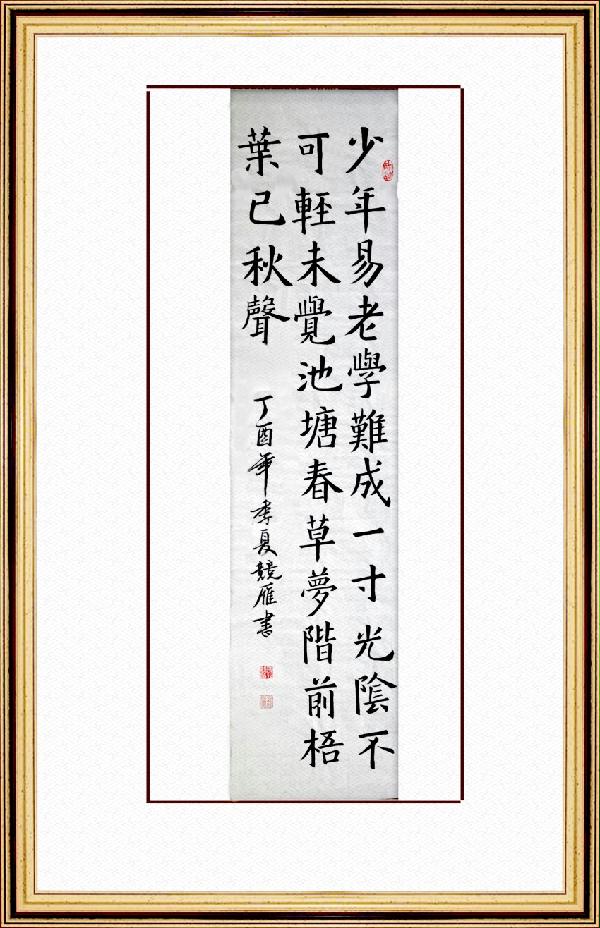 少年易老學難成一寸光陰不
可輕未覺池塘春草夢階前梧
葉已秋聲
丁酉年季夏競雁書